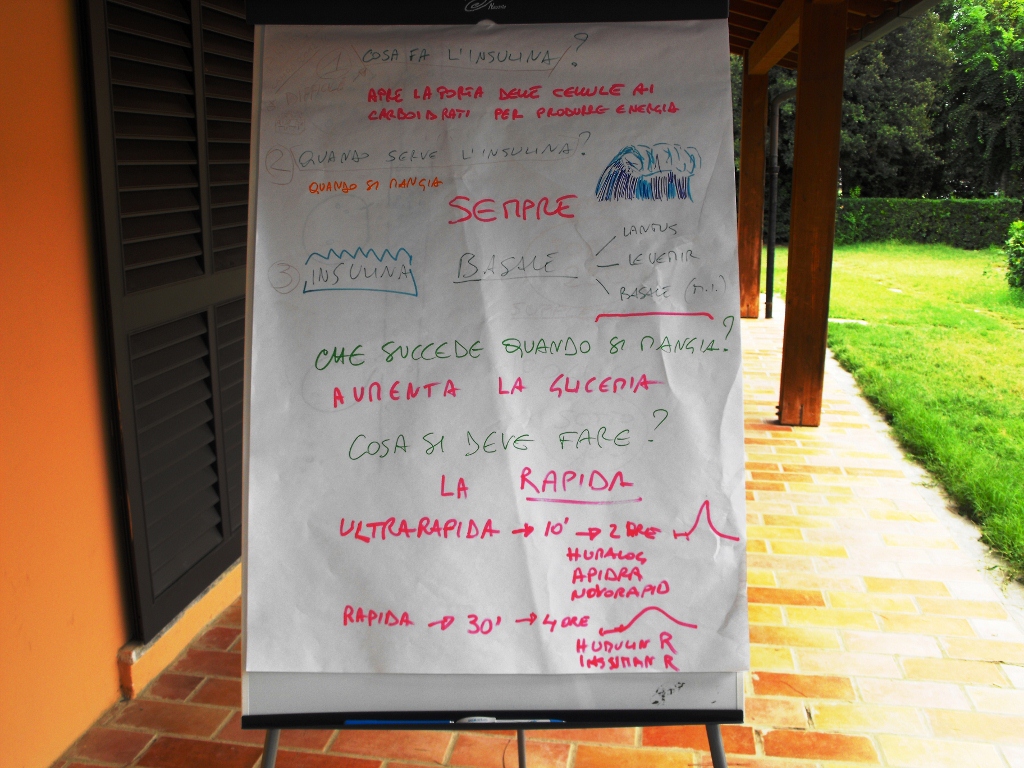 1 COSA FA L'INSULINA?
APRE LA PORTA DELLE CELLULE AI
CARBOIDRATI PER PRODURRE ENERGIA
2 QUANDO SERVE L'INSULINA?
QUANDO SI MANGIA
SEMPRE
3 INSULINA BASALE
LANTUS
LEVEMIR
BASALE (M.I.)
CHE SUCCEDE QUANDO SI MANGIA?
AUMENTA LA GLICEMIA
COSA SI DEVE FARE?
LA RAPIDA
ULTRARAPIDA → 10' → 2 ORE
HUMALOG
APIDRA
NOVORAPID
RAPIDA → 30' → 4 ORE
HUMULIN R
INSUMAN R